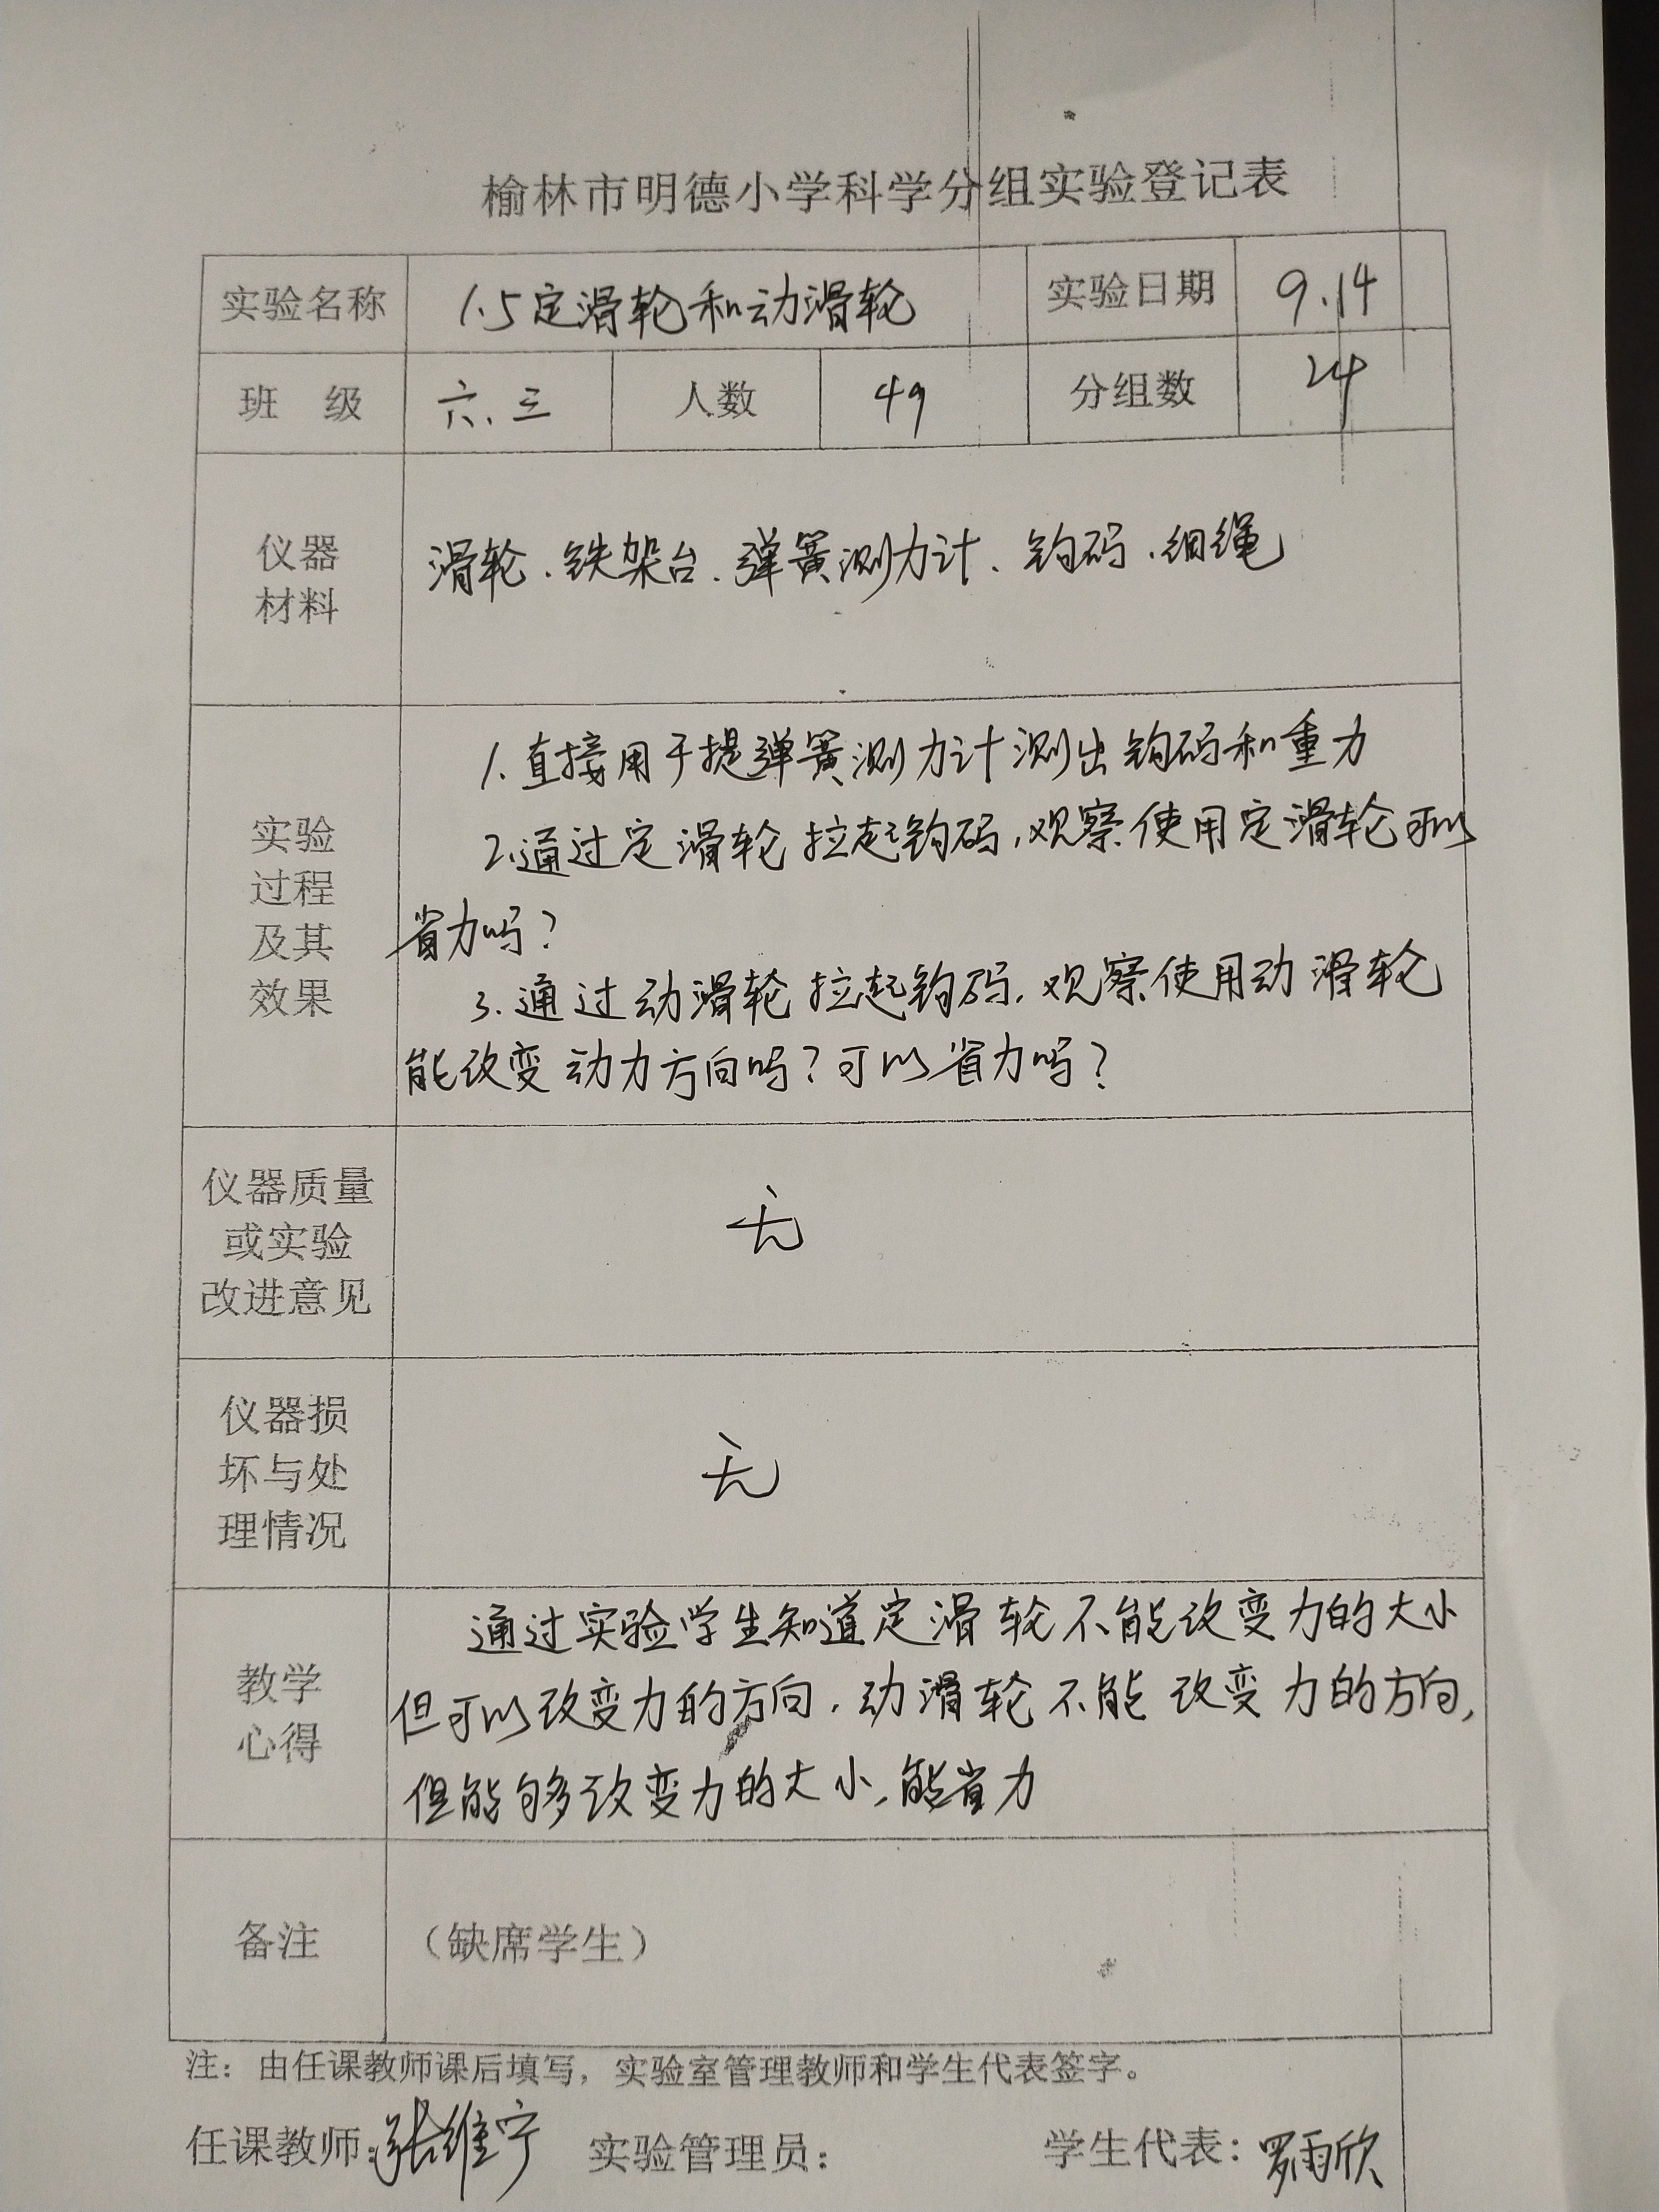 榆林市明德小学科学分组实验登记表
实验名称 1.5定滑轮和动滑轮 实验日期 9.14
班 级 六.三 人数 49 分组数 24
仪器
材料
滑轮、铁架台、弹簧测力计、钩码、细绳
实验
过程
及其
效果
1.直接用手提弹簧测力计测出钩码和重力
2.通过定滑轮拉起钩码,观察使用定滑轮可以
省力吗?
3.通过动滑轮拉起钩码,观察使用动滑轮
能改变动力方向吗?可以省力吗?
仪器质量
或实验
改进意见
无
仪器损
坏与处
理情况
无
教学
心得
通过实验学生知道定滑轮不能改变力的大小
但可以改变力的方向,动滑轮不能改变力的方向,
但能够改变力的大小,能省力
备注 （缺席学生）
注：由任课教师课后填写，实验室管理教师和学生代表签字。
任课教师：张维宁 实验管理员： 学生代表：罗雨欣